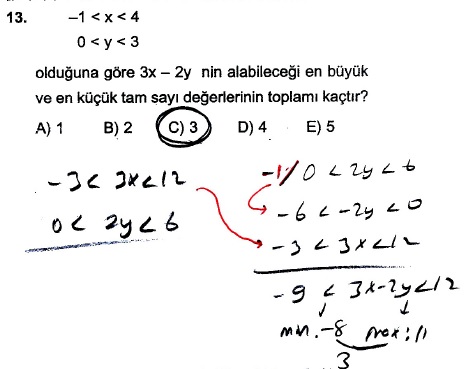 13. –1 < x < 4
0 < y < 3
olduğuna göre 3x – 2y nin alabileceği en büyük
ve en küçük tam sayı değerlerinin toplamı kaçtır?
A) 1 B) 2 C) 3 D) 4 E) 5
-3 < 3x < 12
0 < 2y < 6
-1/ 0 < 2y < 6
-6 < -2y < 0
-3 < 3x < 12
-9 < 3x-2y < 12
min. -8 max: 11
3